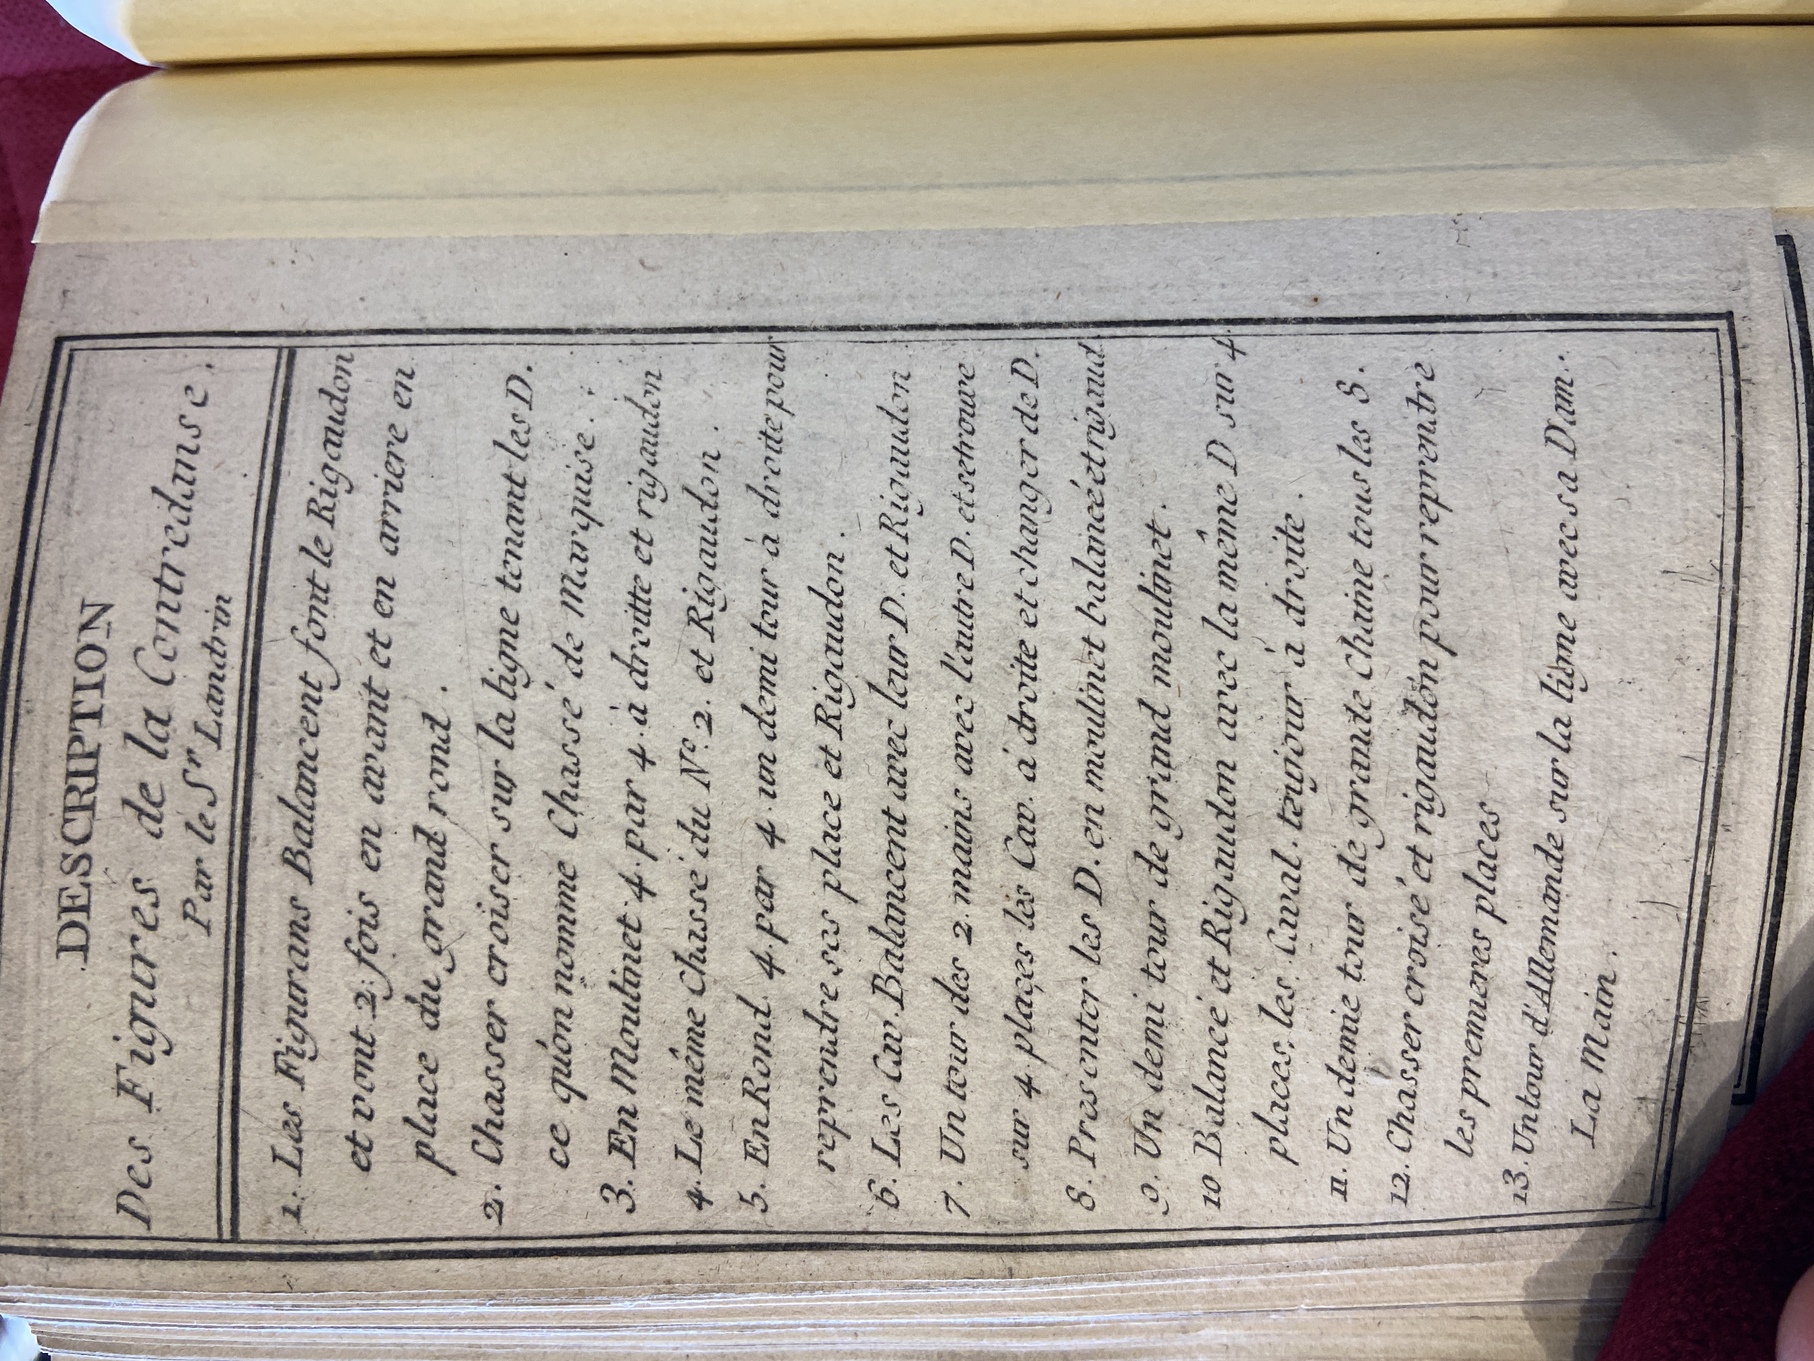 DESCRIPTION
Des Figures de la Contredanse.
Par le Sr Landrin
1. Les Figurans Balancent font le Rigaudon
et vont 2. fois en avant et en arriere en
place du grand rond.
2. Chasser croiser sur la ligne tenant les D.
ce qu'on nomme Chassé de Marquise.
3. En Moulinet 4. par 4. à droitte et rigaudon
4. Le même Chassé du No. 2. et Rigaudon.
5. En Rond 4. par 4 un demi tour à droite pour
reprendre ses place et Rigaudon.
6. Les Cav. Balancent avec leur D. et Rigaudon
7. Un tour des 2. mains avec l'autre D. et se trouve
sur 4 plaçes les Cav. à droite et changer de D.
8. Presenter les D. en moulinet balancé et rigaud.
9. Un demi tour de grand moulinet.
10 Balancé et Rigaudon avec la même D sur 4
places, les Caval. toujour à droite.
11. Un demie tour de grande Chaine tous les 8.
12. Chasser croisé et rigaudon pour reprendre
les premieres places
13. Un tour d'Allemande sur la ligne avec sa Dam.
La Main.